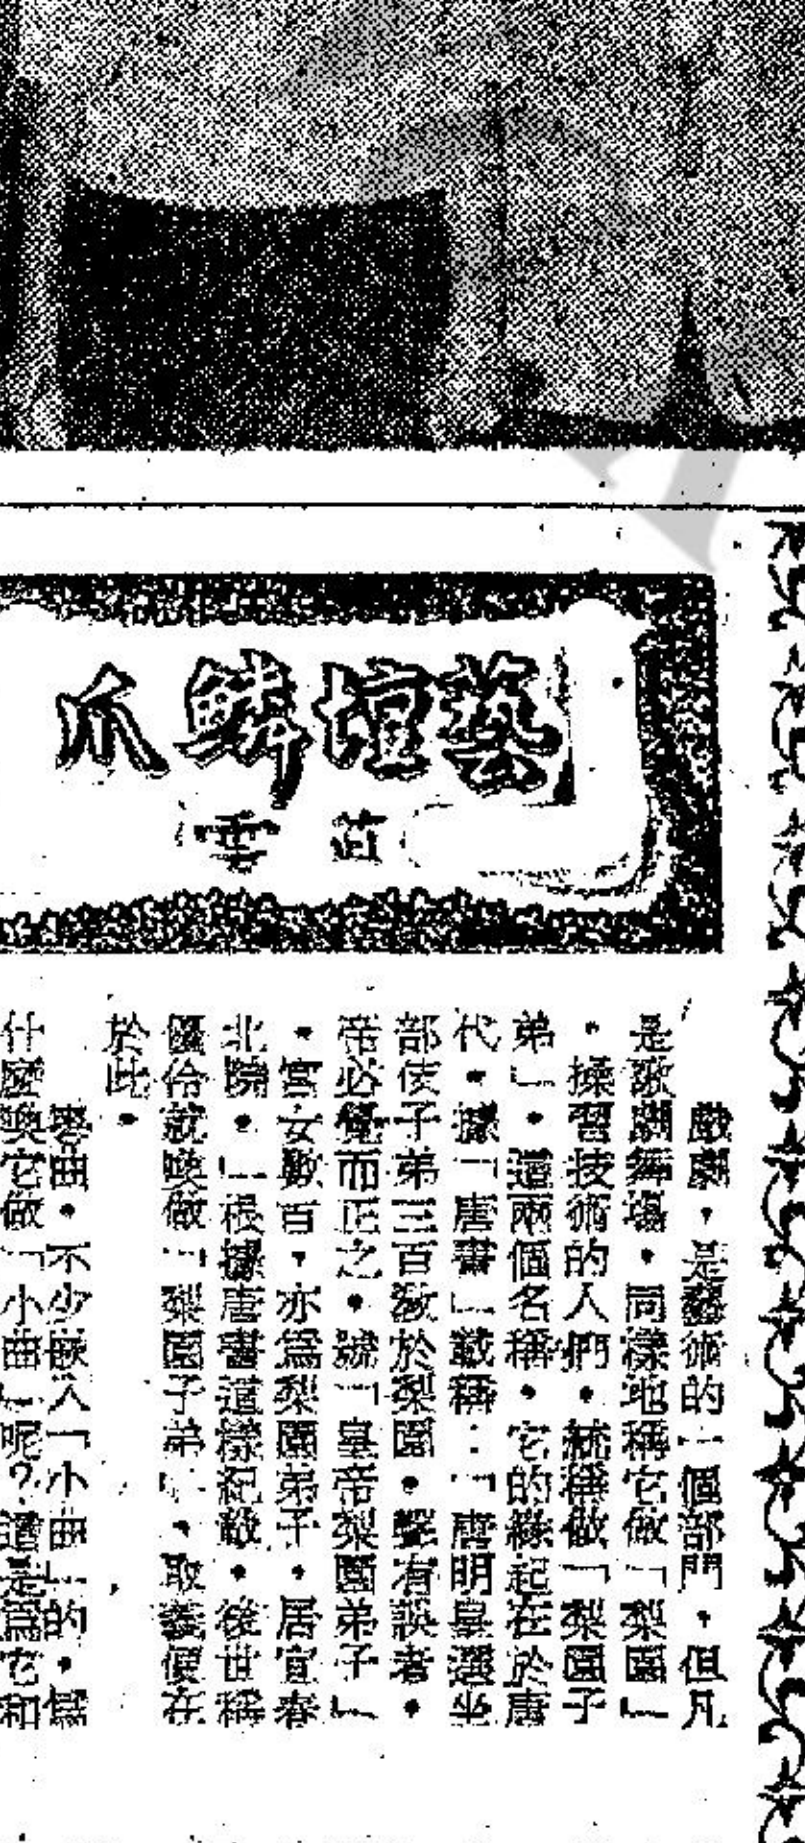 藝壇鱗爪
戲劇，是藝術的一個部門，但凡
是歌劇舞場，同樣地稱它做「梨園」
，操習技術的人們，統稱做「梨園子
弟」。這兩個名稱，它的緣起在於唐
代。據「唐書」載稱：「唐明皇選坐
部伎子弟三百教於梨園，聲有誤者，
帝必覺而正之，號「皇帝梨園弟子」
。宮女數百，亦為梨園弟子，居宜春
北院。」根據唐書這樣紀載，後世稱
優伶就喚做「梨園子弟」，取義便在
於此。
粵曲，不少嵌入「小曲」的，為
什麼喚它做「小曲」呢？這是為它和